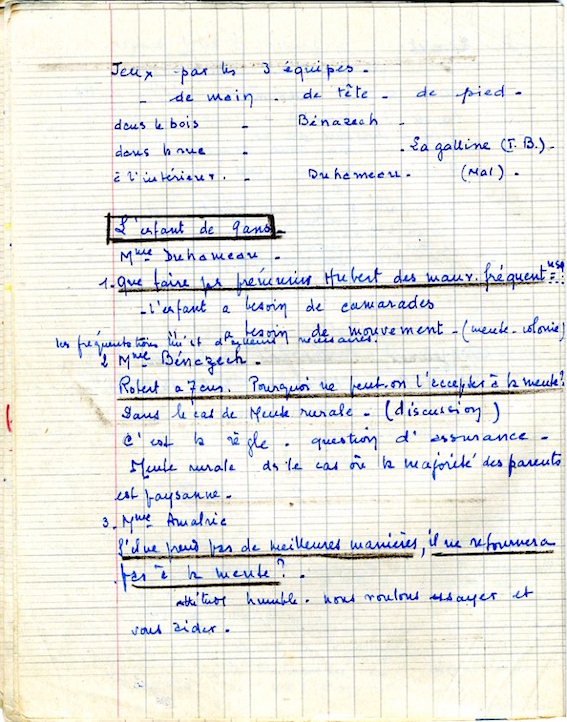 Jeux par les 3 équipes -
- de main - de tête - de pied -
dans le bois - Bénazech -
dans la rue - - La galline (T.B.) -
à l'intérieur. - Duhameau - (Mal) -
L'enfant de 9 ans -
Mme Duhameau -
1- Que faire pr prémunir Hubert des mauv. fréquent
- l'enfant a besoin de camarades
a besoin de mouvement - (meute - colonie)
les fréquentations st d'ailleurs nécessaires.
2 Mme Bénazech -
Robert a 7 ans. Pourquoi ne peut-on l'accepter à la meute?
Dans le cas de Meute rurale - (discussion)
C'est la règle - question d'assurance -
Meute rurale ds le cas où la majorité des parents
est paysanne -
3- Mme Amalric
S'il ne prend pas de meilleures manières, il ne retournera
pas à la meute? -
attitude humble - nous voulons essayer et
vous aider -